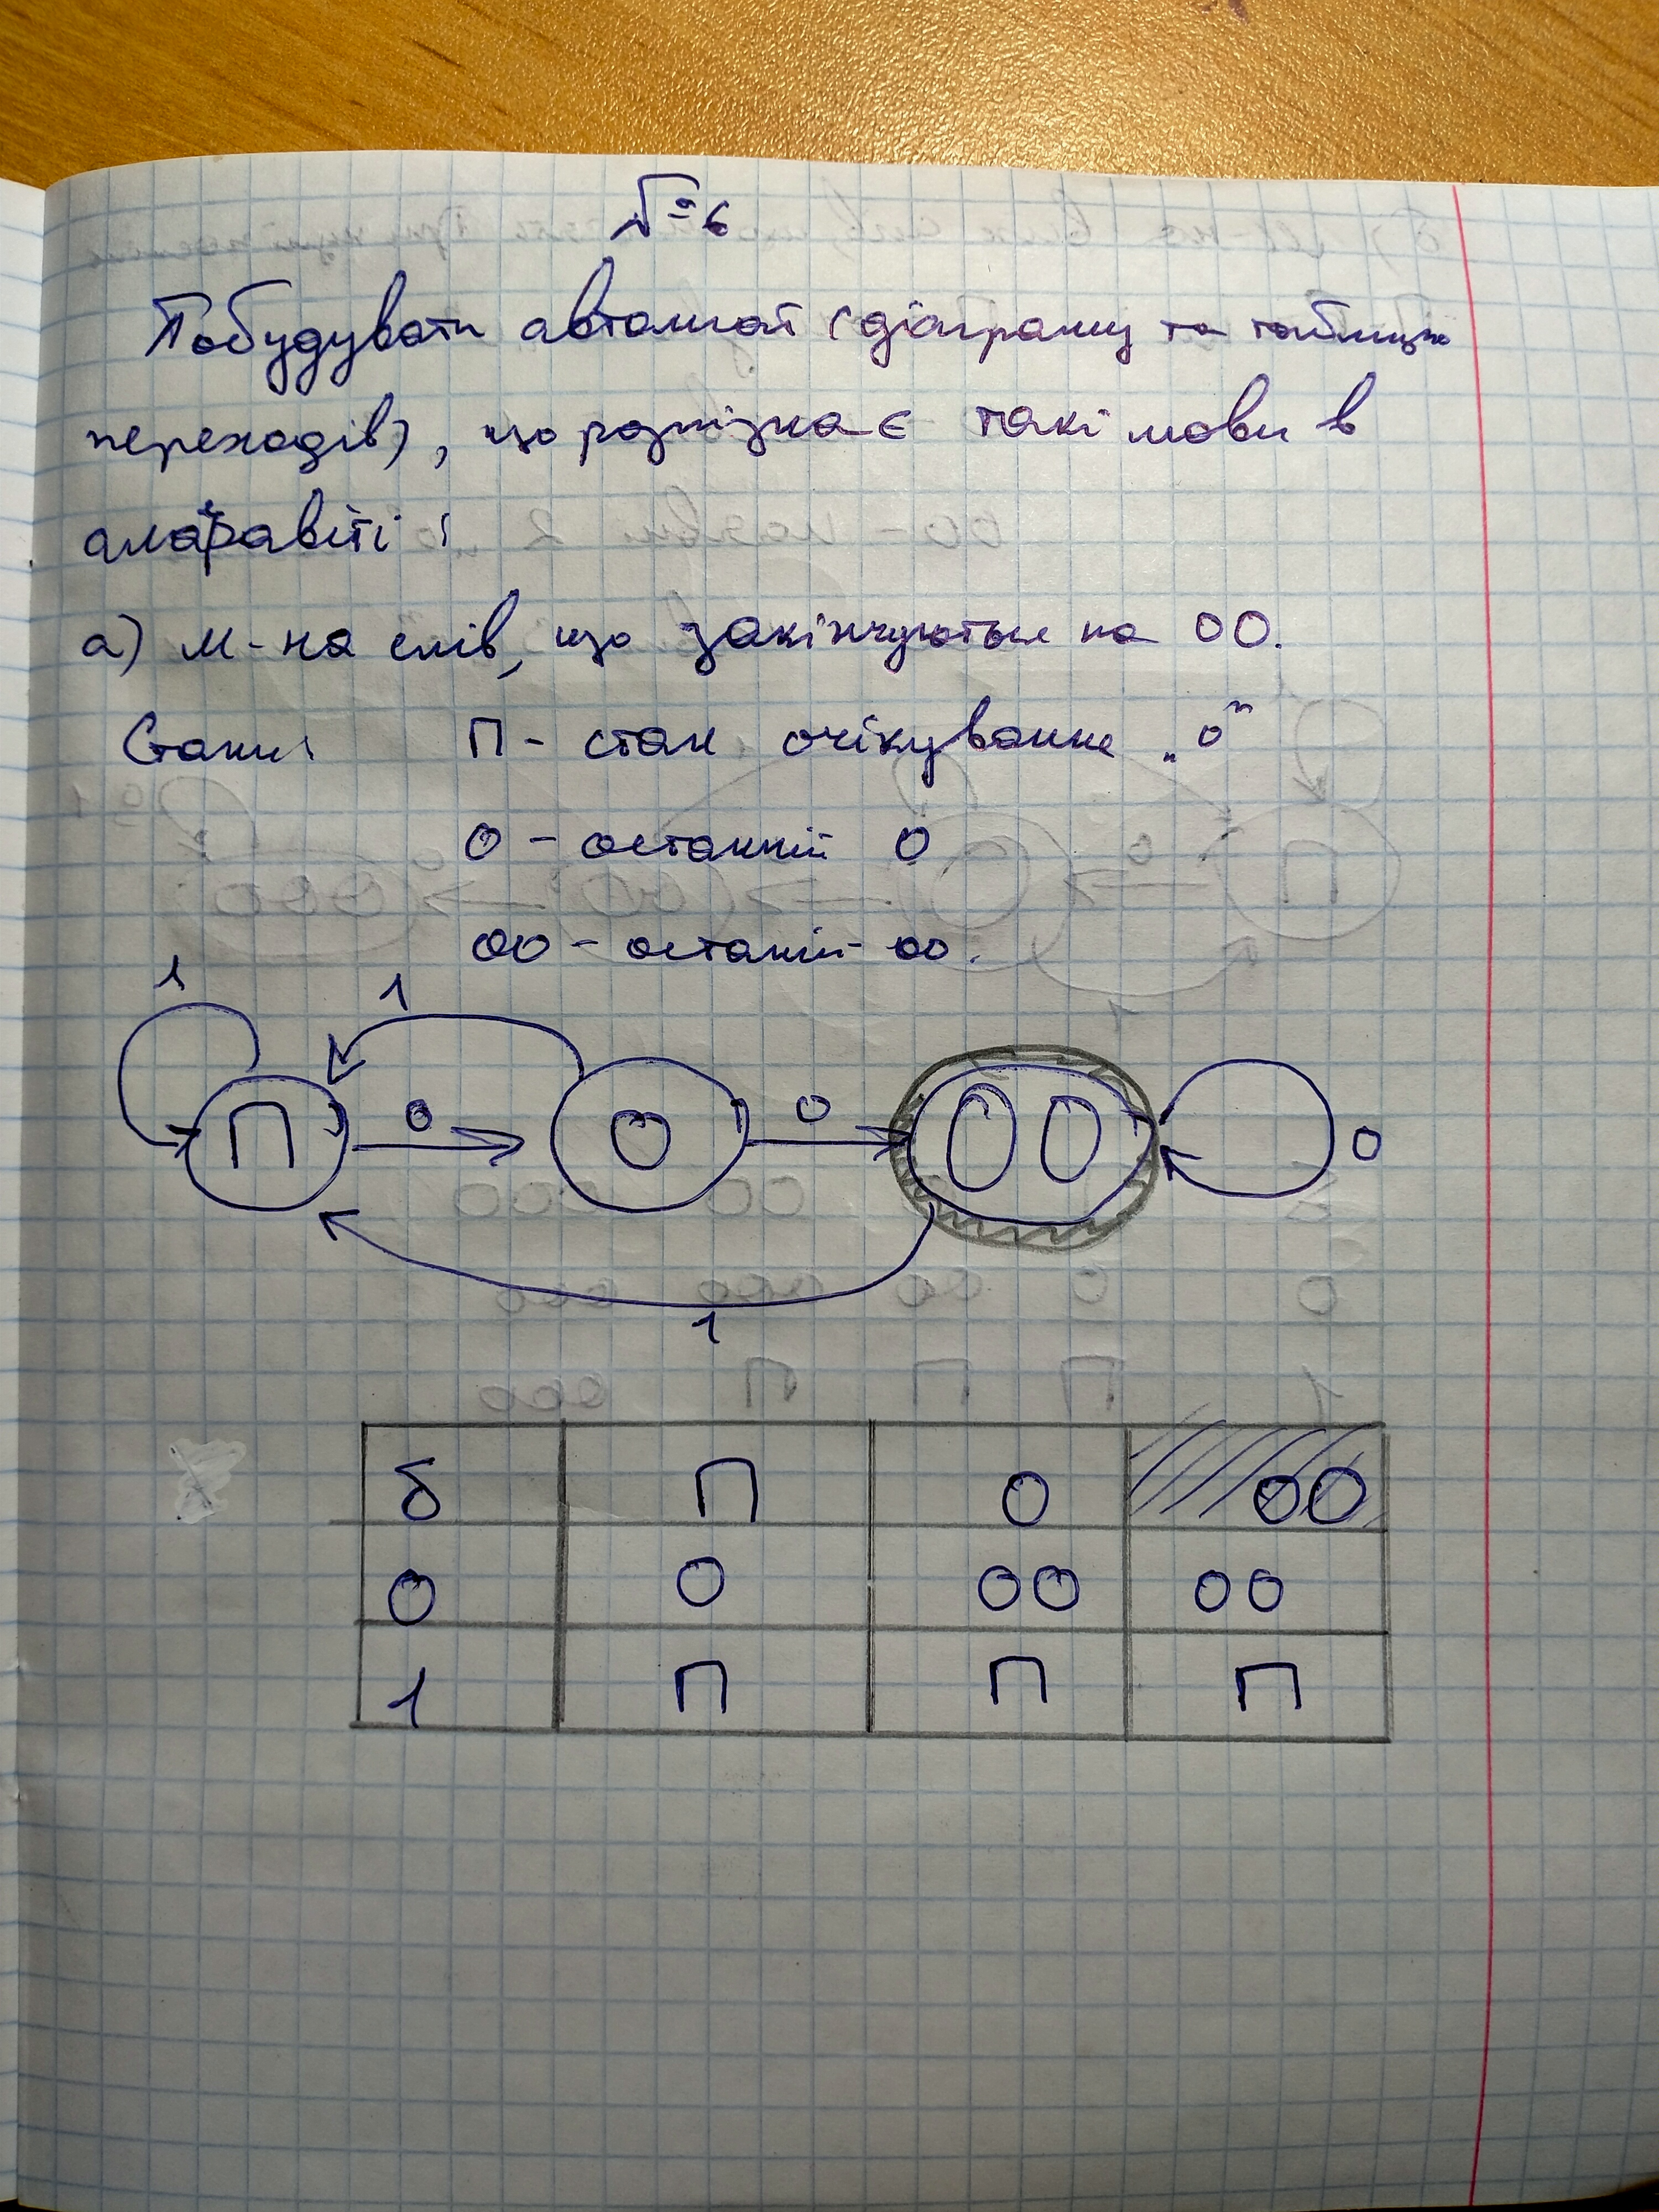 № 6
Побудувати автомат (діаграму та таблицю
переходів), що розпізнає такі мови в
алфавіті :
а) м-на слів, що закінчуються на 00.
Стани: П - стан очікування „0"
0 - останній 0
00 - останнії 00.
1 1
П 0 0 0 00 0
1
б П 0 00
0 0 00 00
1 П П П